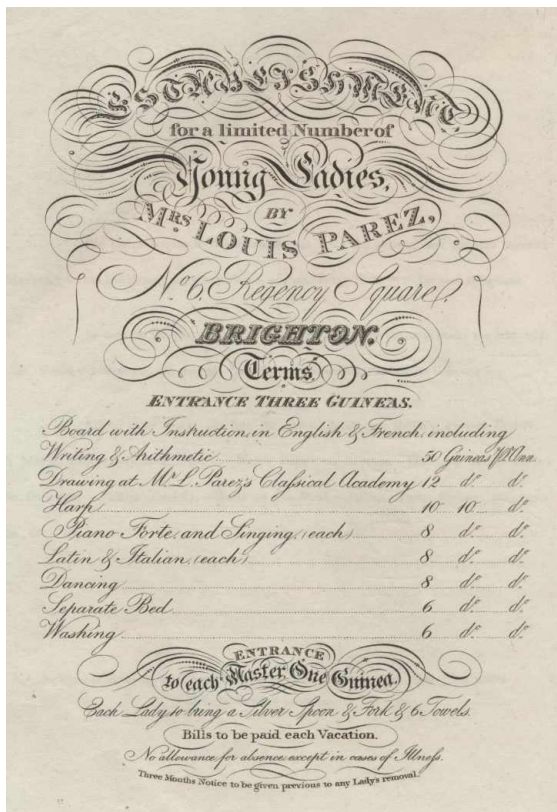 ESTABLISHMENT,
for a limited Number of
Young Ladies,
BY
MRS. LOUIS PAREZ,
No. 6. Regency Square.
BRIGHTON.
Terms
ENTRANCE THREE GUINEAS.
Board with Instruction in English & French, including
Writing & Arithmetic 50 Guineas Pr. Ann.
Drawing at Mr. L. Parez's Classical Academy 12 do. do.
Harp 10 10 do.
Piano Forte, and Singing, (each) 8 do. do.
Latin & Italian, (each) 8 do. do.
Dancing 8 do. do.
Separate Bed 6 do. do.
Washing 6 do. do.
ENTRANCE
to each Master One Guinea.
Each Lady to bring a Silver Spoon & Fork & 6 Towels.
Bills to be paid each Vacation.
No allowance for absence except in cases of Illness.
Three Months Notice to be given previous to any Lady's removal.